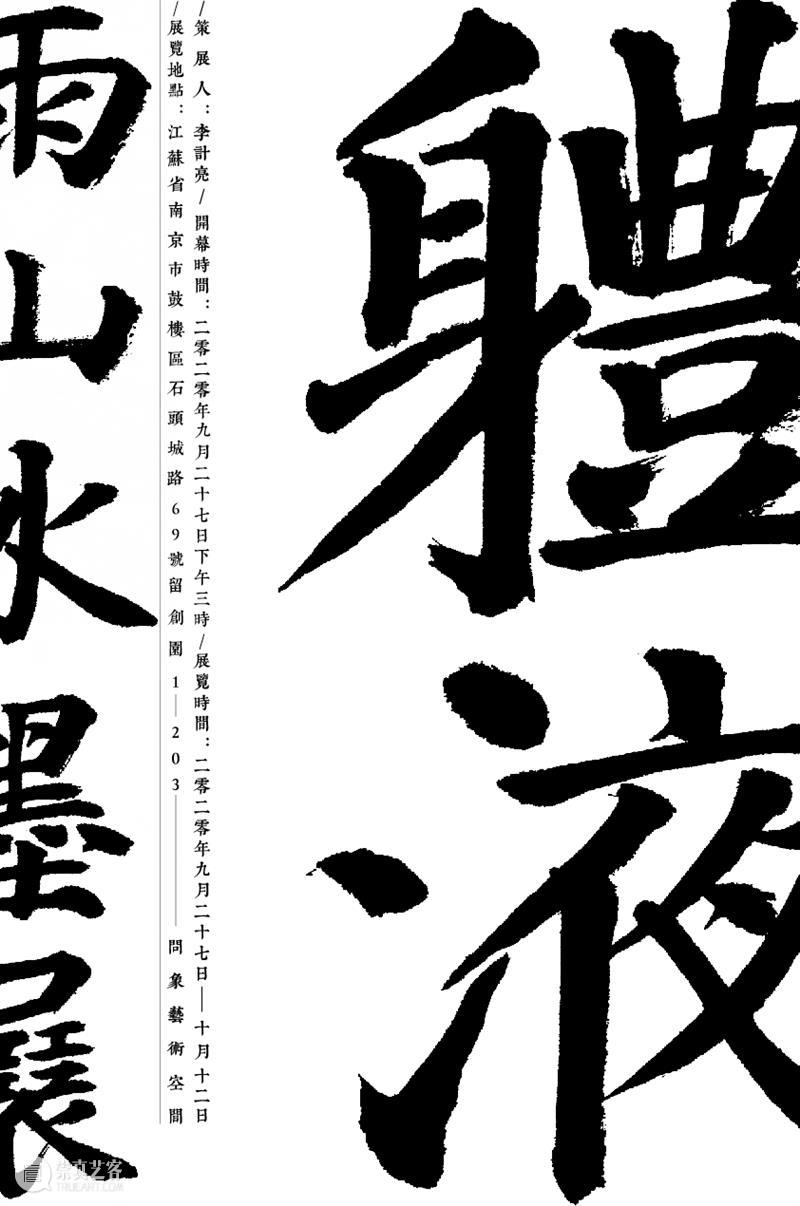 軆液
/策展人:李計亮/開幕時間:二零二零年九月二十七日下午三時/展覽時間:二零二零年九月二十七日——十月十二日
/展覽地點:江蘇省南京市鼓樓區石頭城路69號留創園1—203———問象藝術空間
雨山水墨展
崇真艺客
TRUEART.COM